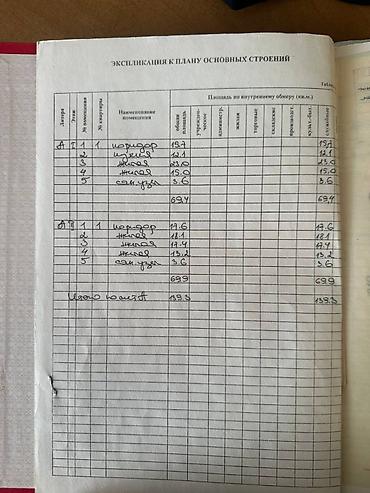 ЭКСПЛИКАЦИЯ К ПЛАНУ ОСНОВНЫХ СТРОЕНИЙ
Литера Этаж № помещения № квартиры Наименование помещения Площадь по внутреннему обмеру (кв.м.)
общая площадь учрежденческие администр. жилая торговые складские производст. культ.-быт. служебные
А I 1 1 коридор 15.7 15.7
2 кухня 12.1 12.1
3 жилая 23.0 23.0
4 жилая 15.0 15.0
5 сан.узел 3.6 3.6
69.4 69.4
А II 1 1 коридор 17.6 17.6
2 жилая 18.1 18.1
3 жилая 17.4 17.4
4 жилая 13.2 13.2
5 сан.узел 3.6 3.6
69.9 69.9
Итого по лит А 139.3 139.3